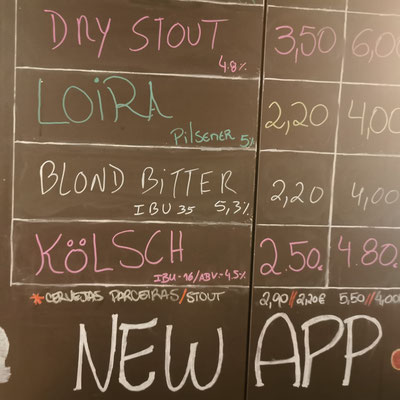 DRY STOUT 3,50 6,00
4.8%
LOIRA 2,20 4,00
Pilsener 5%
BLOND BITTER 2,20 4,00
IBU 35 5,3%
KÖLSCH 2.50€ 4.80
IBU-16/ABV-4.5%
*CERVEJAS PARCEIRAS/STOUT 2,90//2,20€ 5,50//4,00
NEW APP